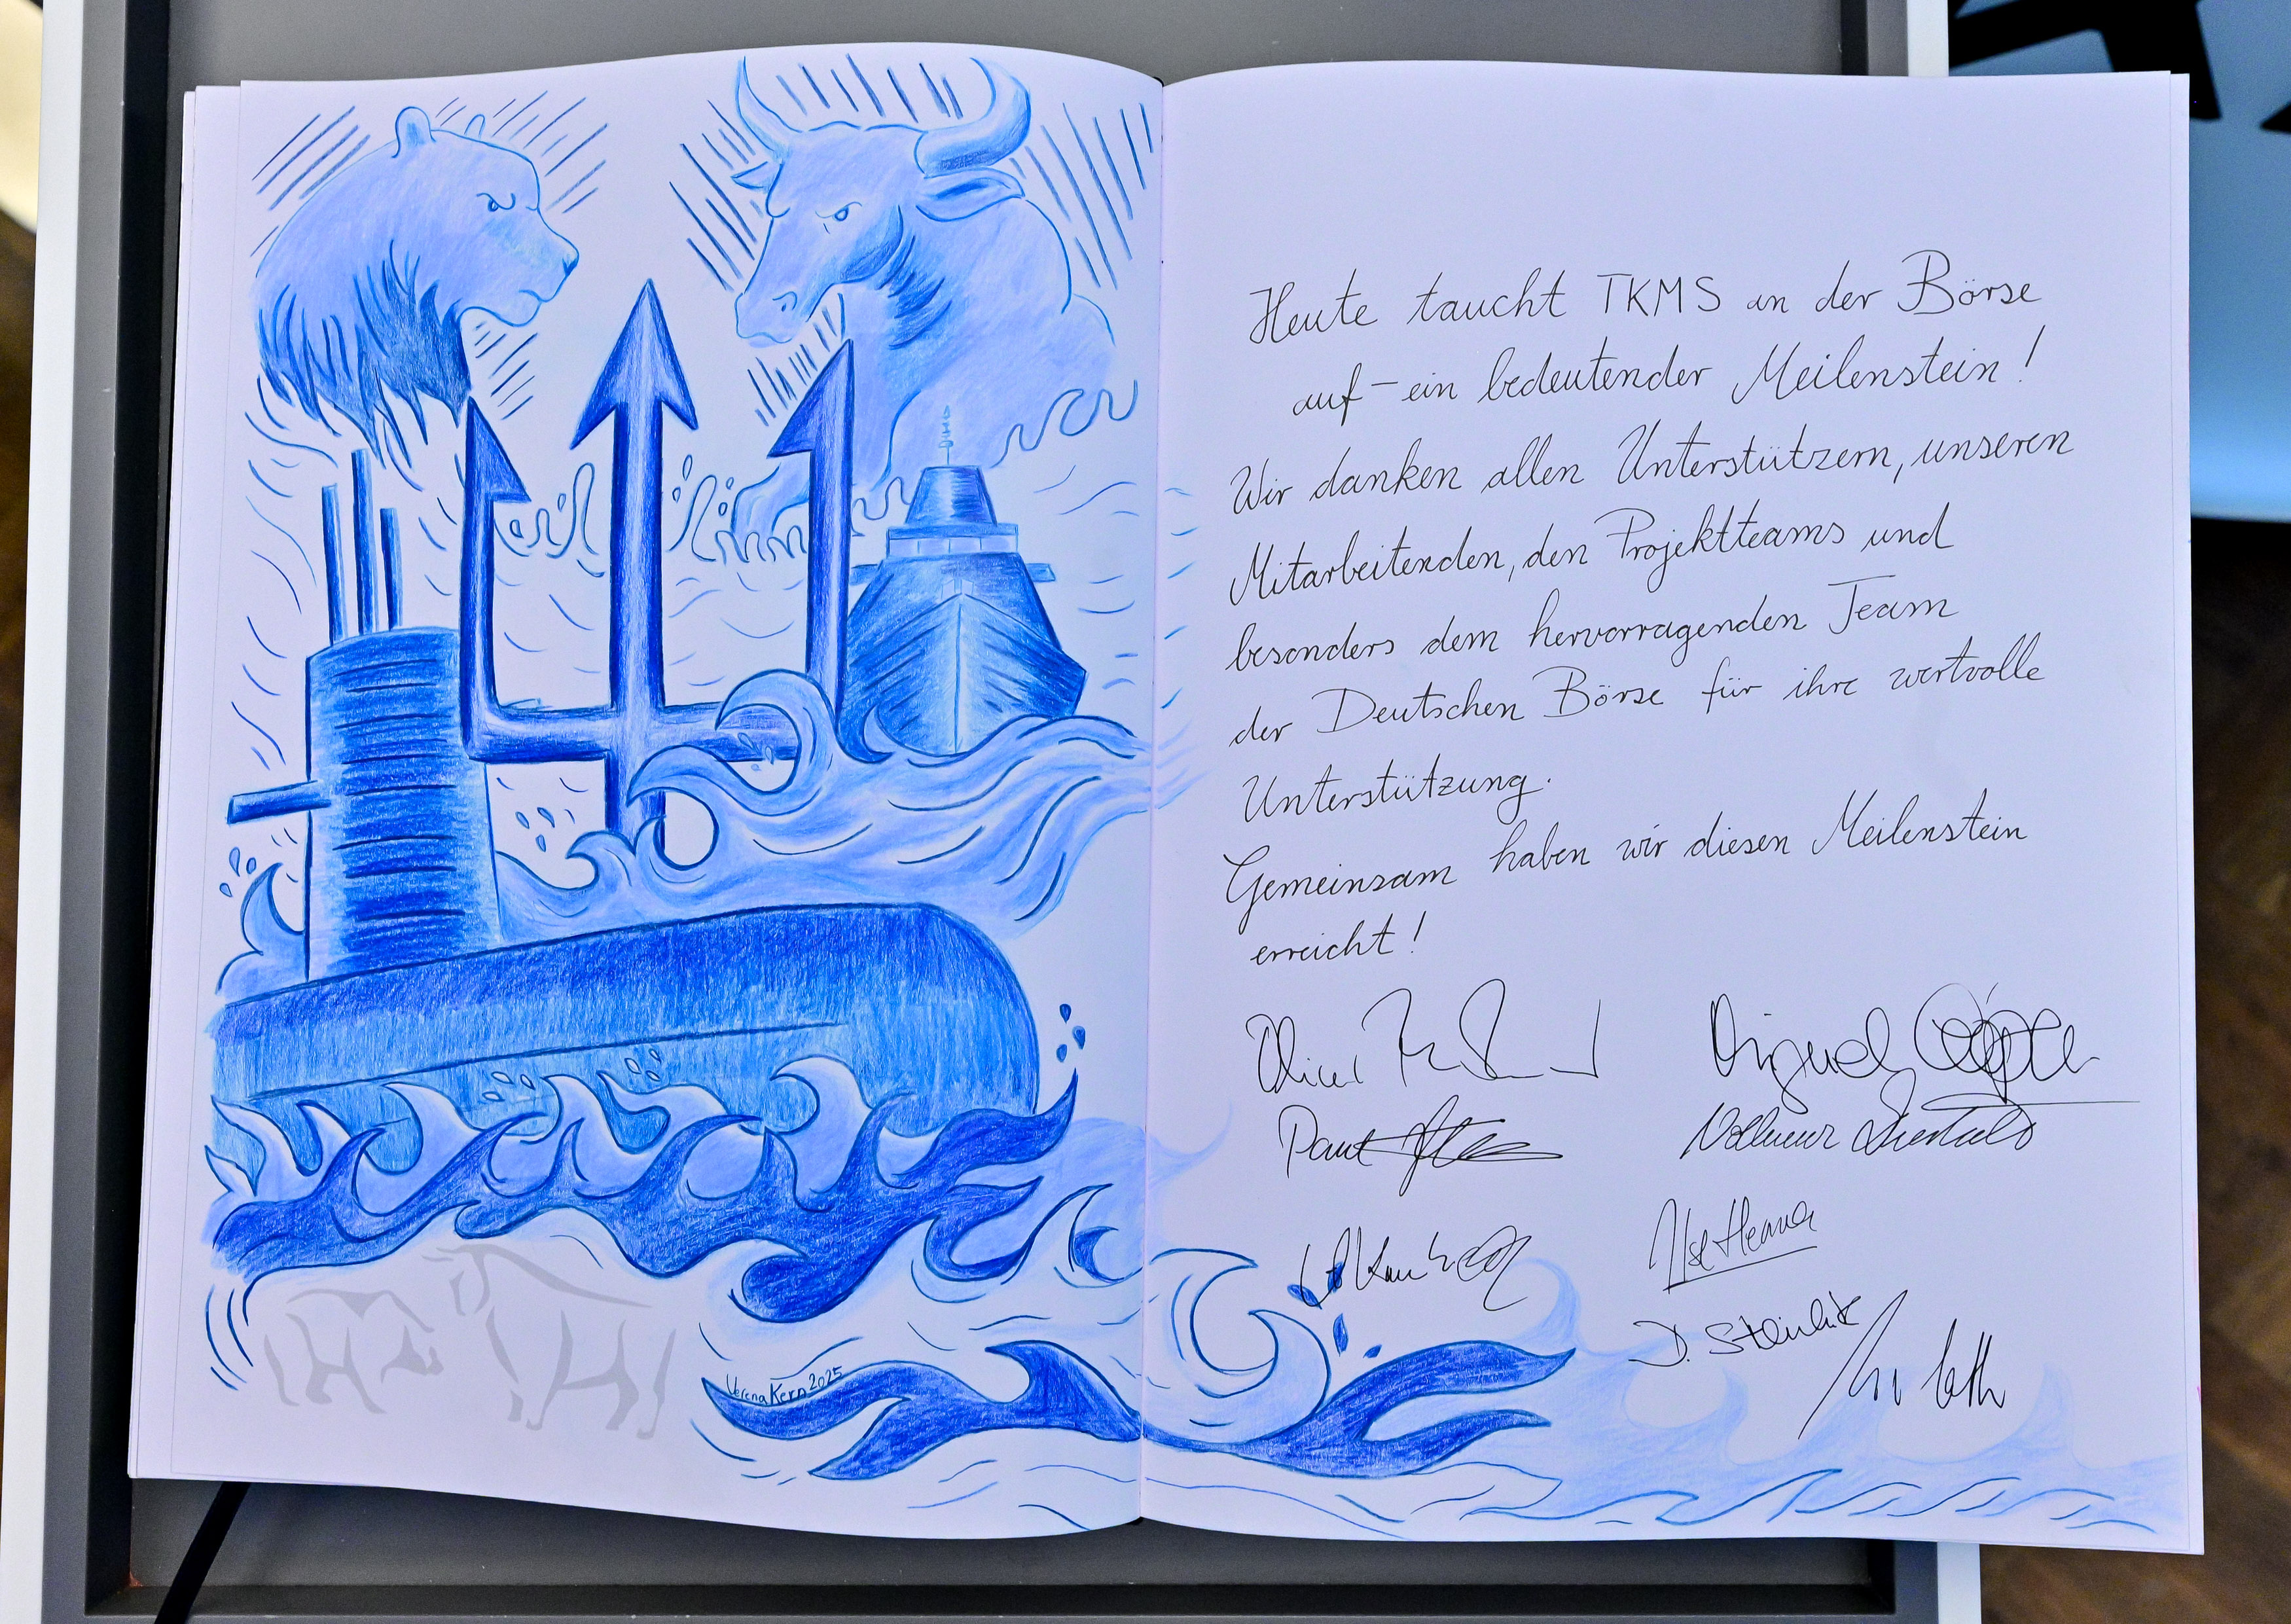 Heute taucht TKMS an der Börse
auf – ein bedeutender Meilenstein!
Wir danken allen Unterstützern, unseren
Mitarbeitenden, den Projektteams und
besonders dem hervorragenden Team
der Deutschen Börse für ihre wertvolle
Unterstützung.
Gemeinsam haben wir diesen Meilenstein
erreicht!
Oliver
Paul
Volkmar
D.
Verena Kern 2025